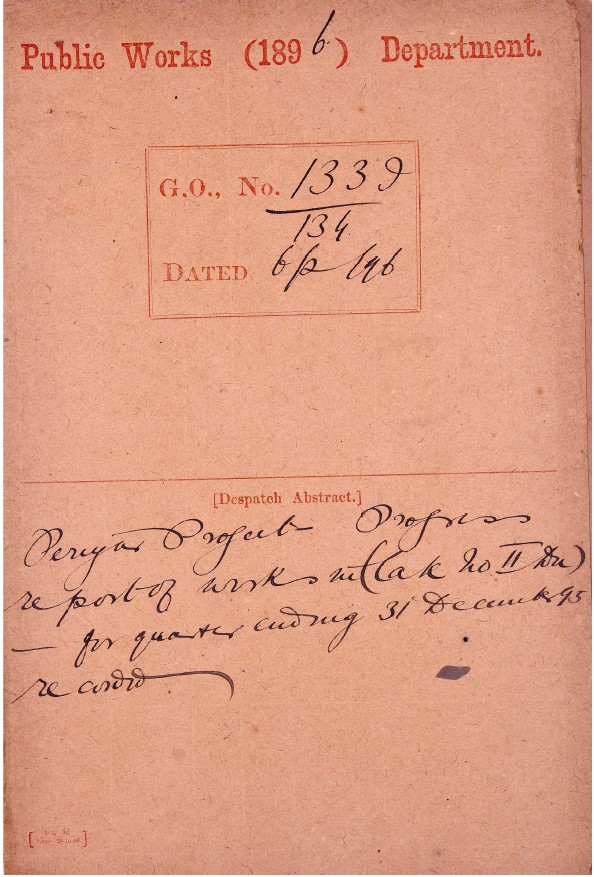 Public Works (1896) Department.
G.O., No. 133
134
DATED 6/2/96
[Despatch Abstract.]
Periyar Project Progress
report of works in (Lake No II Dn)
— for quarter ending 31 December 95
recorded